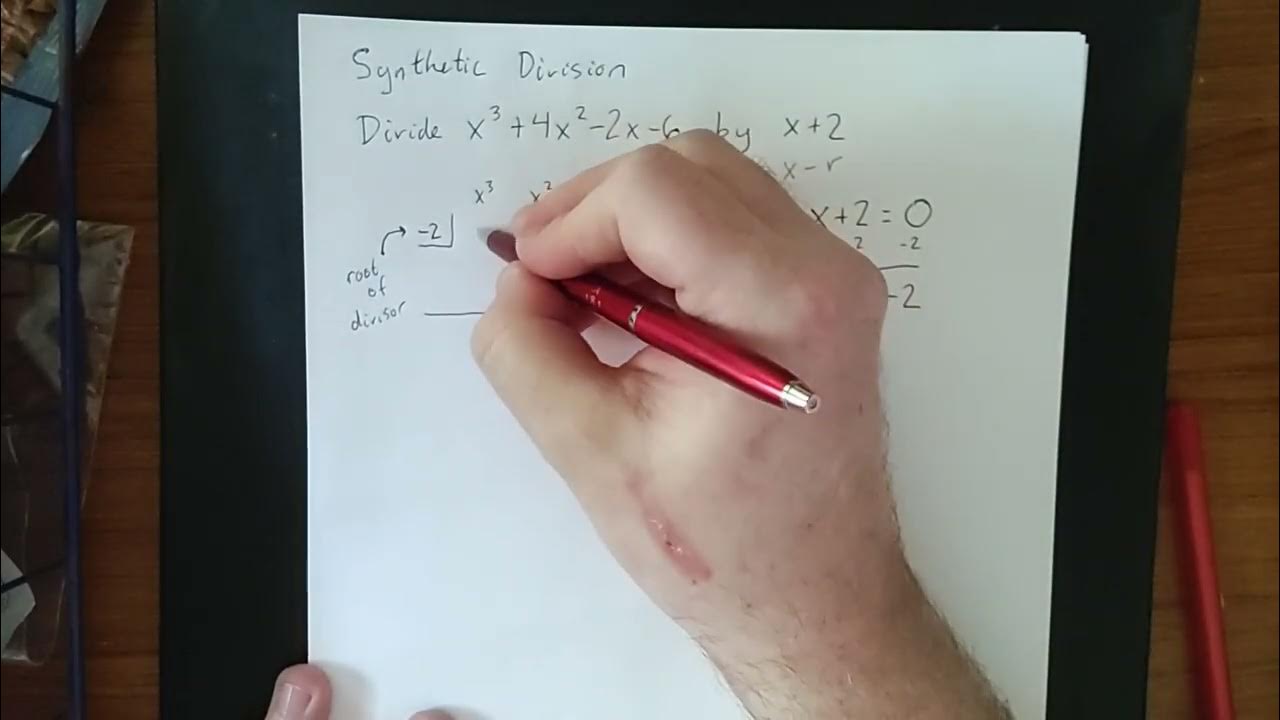 Synthetic Division
Divide x³+4x²-2x-6 by x+2
x-r
x³ x²
x+2=0
-2
2 -2
-2
root
of
divisor